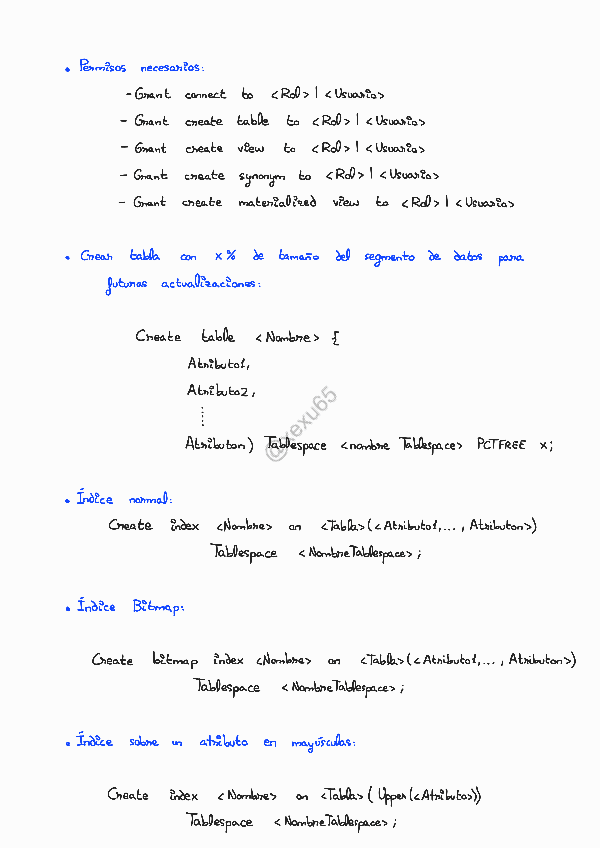 • Permisos necesarios:
- Grant connect to <Rol> | <Usuario>
- Grant create table to <Rol> | <Usuario>
- Grant create view to <Rol> | <Usuario>
- Grant create synonym to <Rol> | <Usuario>
- Grant create materialized view to <Rol> | <Usuario>
• Crear tabla con x% de tamaño del segmento de datos para
futuras actualizaciones:
Create table <Nombre> {
Atributo1,
Atributo2,
⋮
Atributon) Tablespace <nombre Tablespace> PCTFREE x;
@xexu65
• Índice normal:
Create index <Nombre> on <Tabla>(<Atributo1,..., Atributon>)
Tablespace <NombreTablespace>;
• Índice Bitmap:
Create bitmap index <Nombre> on <Tabla>(<Atributo1,..., Atributon>)
Tablespace <NombreTablespace>;
• Índice sobre un atributo en mayúsculas:
Create index <Nombre> on <Tabla>( Upper(<Atributo>))
Tablespace <NombreTablespace>;